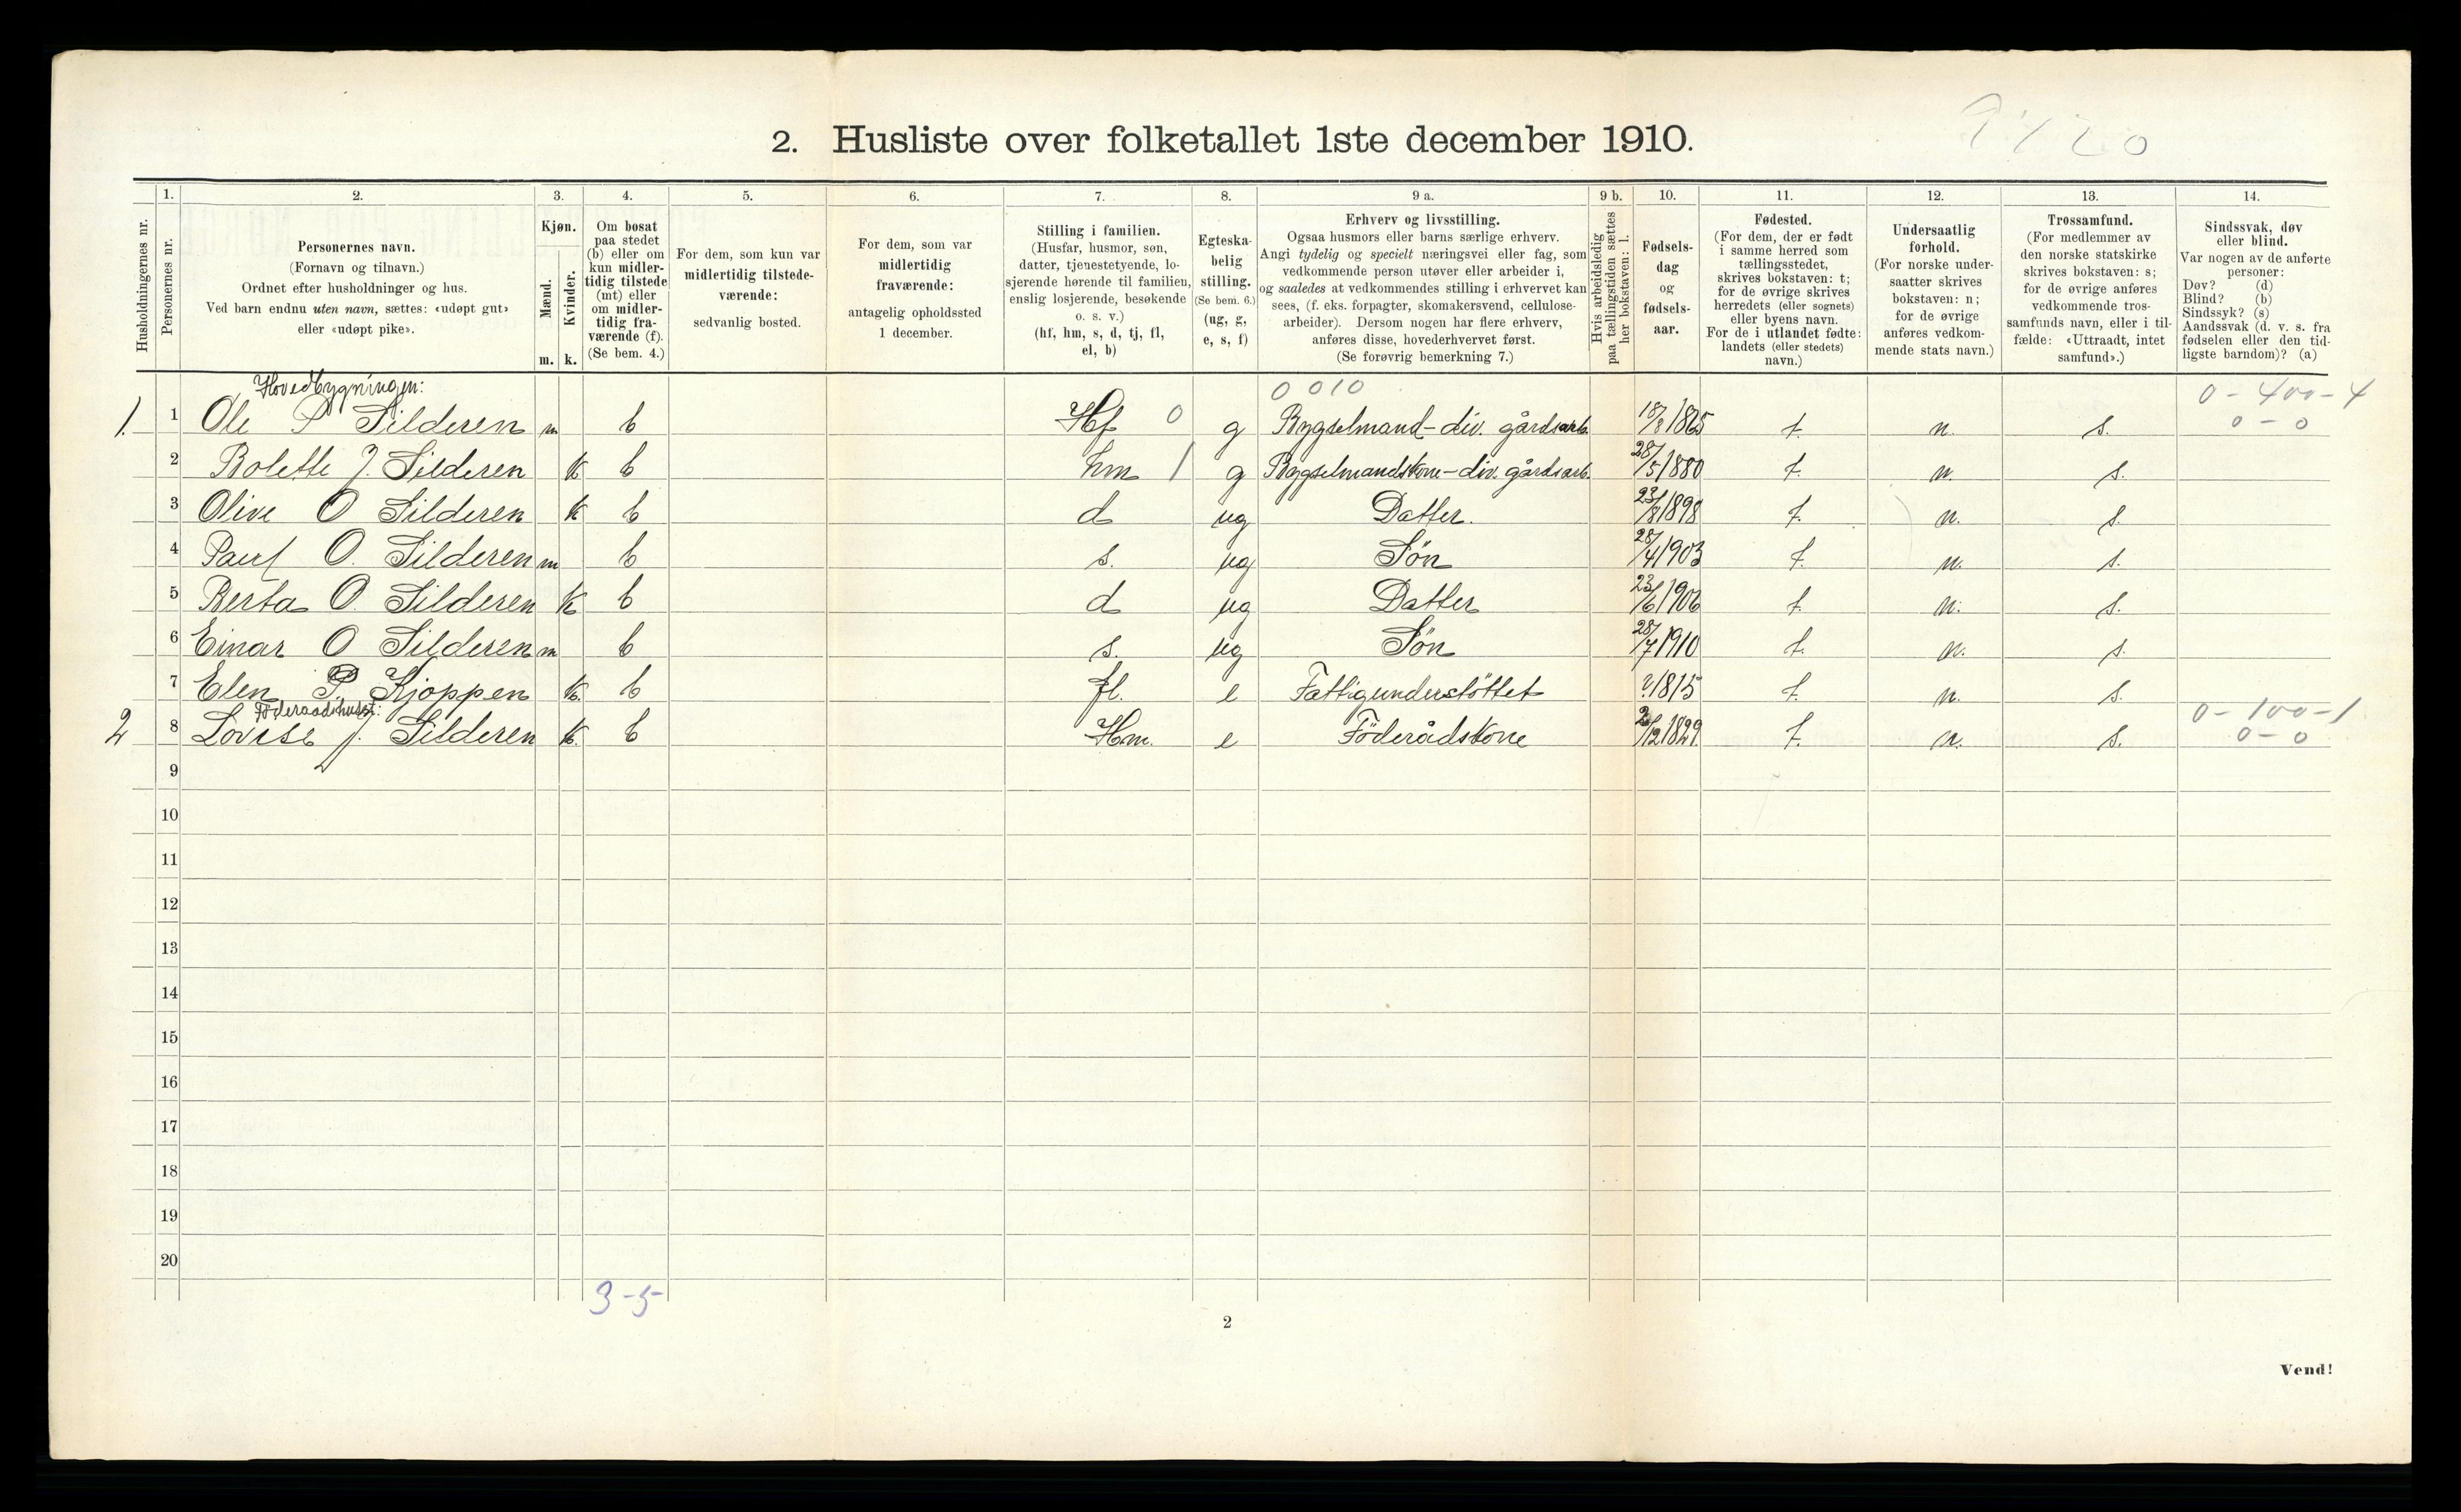 9120
2. Husliste over folketallet 1ste december 1910.
Husholdningernes nr.
1.
Personernes nr.
2.
Personernes navn.
(Fornavn og tilnavn.)
Ordnet efter husholdninger og hus.
Ved barn endnu uten navn, sættes: «udøpt gut»
eller «udøpt pike».
3.
Kjøn.
Mænd.
Kvinder.
m. k.
4.
Om bosat
paa stedet
(b) eller om
kun midler-
tidig tilstede
(mt) eller
om midler-
tidig fra-
værende (f).
(Se bem. 4.)
5.
For dem, som kun var
midlertidig tilstede-
værende:
sedvanlig bosted.
6.
For dem, som var
midlertidig
fraværende:
antagelig opholdssted
1 december.
7.
Stilling i familien.
(Husfar, husmor, søn,
datter, tjenestetyende, lo-
sjerende hørende til familien,
enslig losjerende, besøkende
o. s. v.)
(hf, hm, s, d, tj, fl,
el, b)
8.
Egteska-
belig
stilling.
(Se bem. 6.)
(ug, g,
e, s, f)
9 a.
Erhverv og livsstilling.
Ogsaa husmors eller barns særlige erhverv.
Angi tydelig og specielt næringsvei eller fag, som
vedkommende person utøver eller arbeider i,
og saaledes at vedkommendes stilling i erhvervet kan
sees, (f. eks. forpagter, skomakersvend, cellulose-
arbeider). Dersom nogen har flere erhverv,
anføres disse, hovederhvervet først.
(Se forøvrig bemerkning 7.)
9 b.
Hvis arbeidsledig
paa tællingstiden sættes
her bokstaven: l.
10.
Fødsels-
dag
og
fødsels-
aar.
11.
Fødested.
(For dem, der er født
i samme herred som
tællingsstedet,
skrives bokstaven: t;
for de øvrige skrives
herredets (eller sognets)
eller byens navn.
For de i utlandet fødte:
landets (eller stedets)
navn.)
12.
Undersaatlig
forhold.
(For norske under-
saatter skrives
bokstaven: n;
for de øvrige
anføres vedkom-
mende stats navn.)
13.
Trossamfund.
(For medlemmer av
den norske statskirke
skrives bokstaven: s;
for de øvrige anføres
vedkommende tros-
samfunds navn, eller i til-
fælde: «Uttraadt, intet
samfund».)
14.
Sindssvak, døv
eller blind.
Var nogen av de anførte
personer:
Døv? (d)
Blind? (b)
Sindssyk? (s)
Aandssvak (d. v. s. fra
fødselen eller den tid-
ligste barndom)? (a)
Hovedbygningen: 0 010 0 - 400 - 4
1. 1 Ole P Silderen m b Hf 0 g Bygselmand - div. gårdsarb. 18/8 1865 t. n. s. 0 - 0
2 Bolette J. Silderen k b hm 1 g Bygselmandskone - div. gårdsarb. 28/5 1880 t. n. s.
3 Olive O Silderen k b d ug Datter. 23/8 1898 t. n. s.
4 Paul O. Silderen m b s. ug Søn 28/4 1903 t. n. s.
5 Berta O. Silderen k b d ug Datter 23/6 1906 t n. s.
6 Einar O Silderen m b s. ug Søn 28/7 1910 t. n. s.
7 Elen P. Kjoppen k. b fl. e Fattigunderstöttet ? 1815 t. n. s.
Föderaadshuset: 0 - 100 - 1
2 8 Lovise J. Silderen k. b Hm. e Föderådskone /12 1829. t. n. s. 0 - 0
9
10
11
12
13
14
15
16
17
18
19
20
3 - 5
2
Vend!